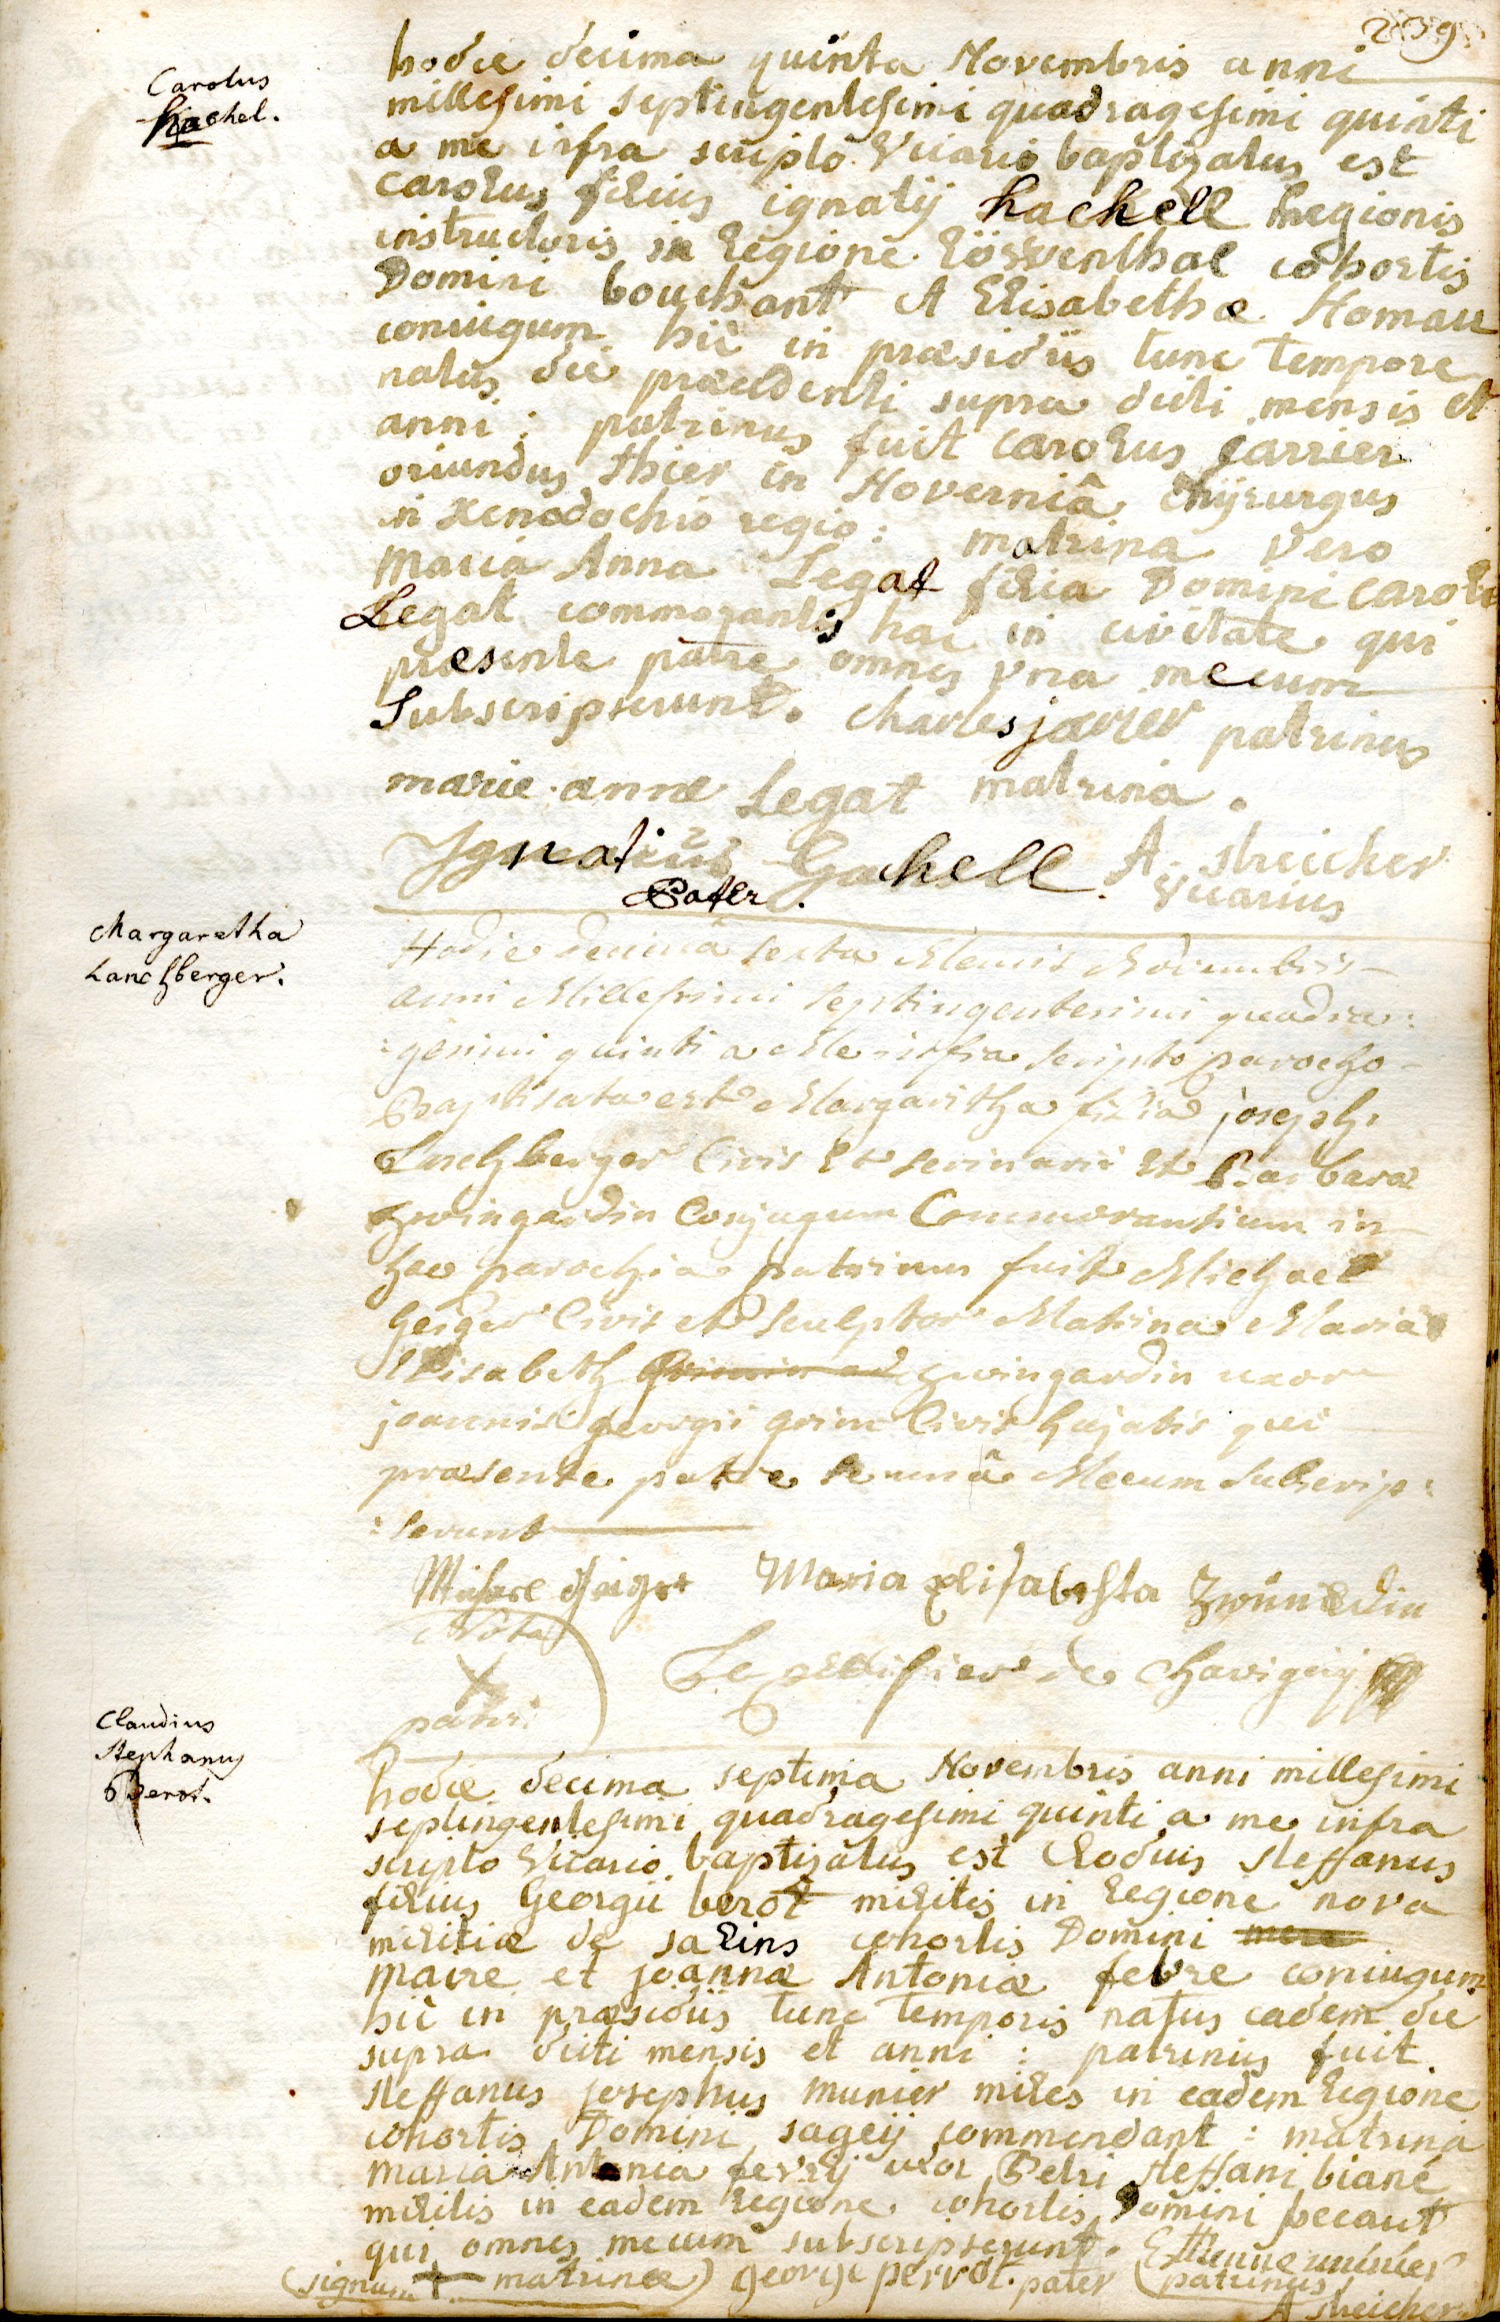 239
Carolus
Hachel.
hodie decima quinta Novembris anni
millesimi septingentesimi quadragesimi quinti
a me infra scripto Vicario baptizatus est
Carolus filius ignatij hachell legionis
instructoris in legione Löwenthal cohortis
Domini bouchant et Elisabethæ Homan
coniugum hic in præsidijs tunc tempore
natus die præcedenti supra dicti mensis et
anni : patrinus fuit Carolus jarrier
oriundus thier in Noverniâ Chyrurgus
in xenodochio regio : matrina vero
Maria Anna Legat filia Domini Caroli
Legat commorantis hac in civitate qui
præsente patre omnes vna mecum
Subscripserunt. charles jarier patrinus
marie anne Legat matrina.
Ignatius Gachell A. streicher
Pater. Vicarius
Margaretha
Lanchberger.
Hodie decimâ sexta Mensis Novembris
anni Millesimi septingentesimi quadra:
:gesimi quinti a Me infra scripto parocho
Baptisata est Margaritha filia joseph
Lanchberger Civis et scrinarii et Barbaræ
zwingardin Conjugum Commorantium in
hac parochia patrinus fuit Michael
geiger Civis et sculptor Matrina Maria
Elisabeth zwingardin uxor
joannis georgii grim Civis hujatis qui
præsente patre unâ Mecum subscrip:
:serunt
Michael geiger Maria Elisabetha
Nota
X
patris
Le de Chavigny
Claudius
Stephanus
Berot.
hodie decima septima Novembris anni millesimi
septingentesimi quadragesimi quinti a me infra
scripto Vicario baptizatus est Clodius steffanus
filius Georgii berot militis in legione nova
militiæ de salins cohortis Domini mere
maire et joannæ Antoniæ febre coniugum
hic in præsidijs tunc temporis natus eadem die
supra dicti mensis et anni : patrinus fuit
steffanus josephus munier miles in eadem legione
cohortis Domini sageij commendant : matrina
maria Antonia fevrij uxor Petri steffani biané
militis in eadem legione cohortis Domini becaut
qui omnes mecum subscripserunt. Ettienne munier
(signum + matrinæ) george perrot. pater (patrinus)
A streicher